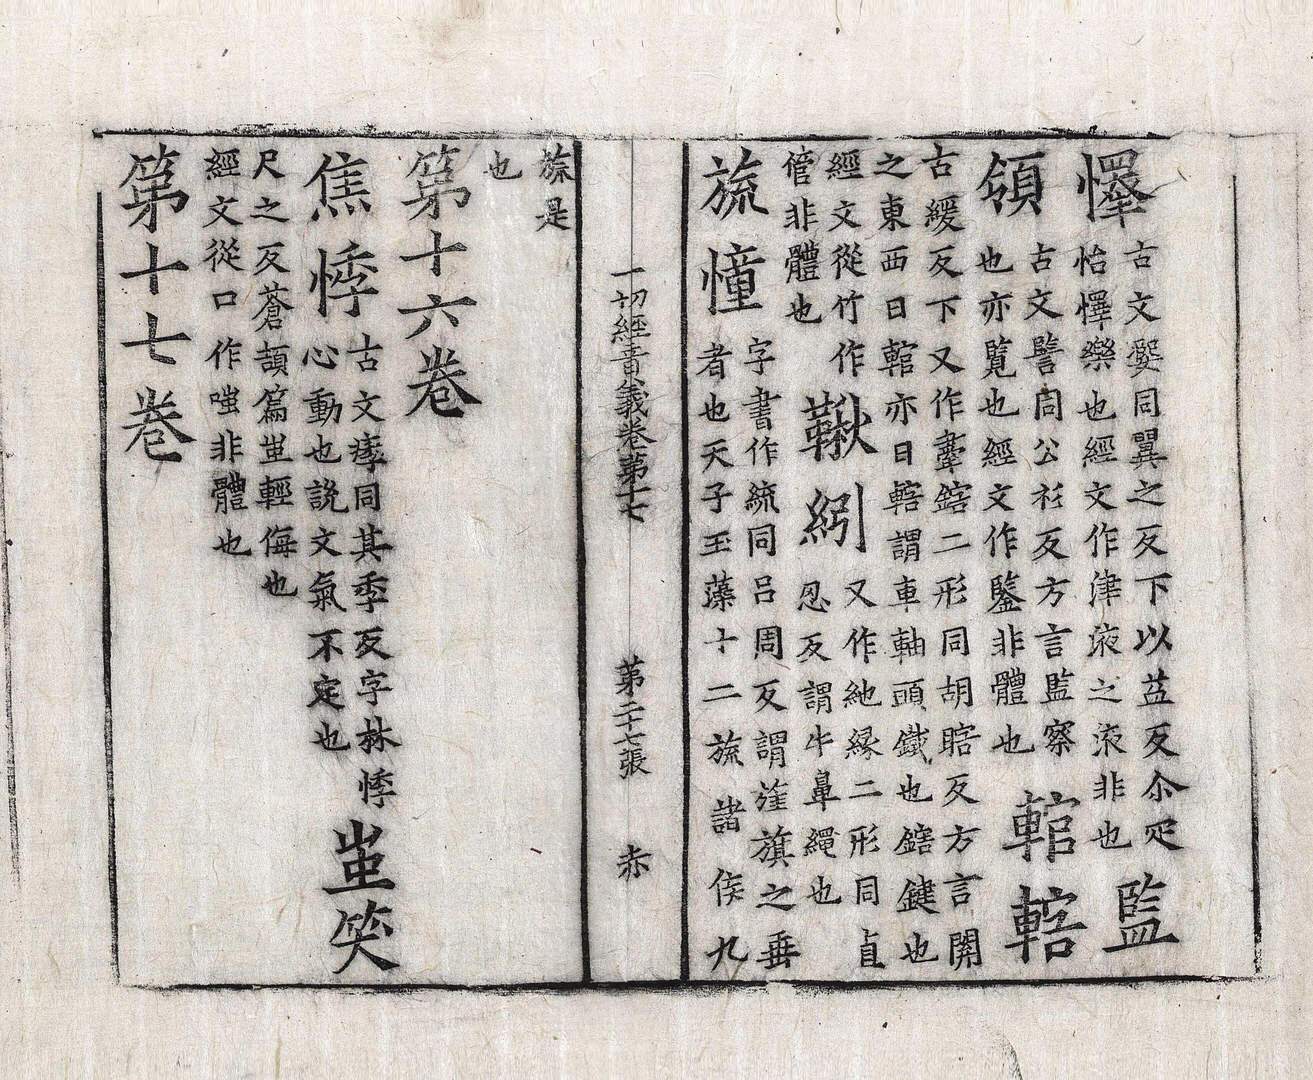 懌 古文 同翼之反下以益反尒疋
怡懌樂也經文作津液之液非也 監
領 古文譼同公衫反方言監察
也亦覽也經文作鑒非體也 輨轄
古緩反下又作舝鎋二形同胡瞎反方言關
之東西曰輨亦曰轄謂車軸頭鐵也鎋鍵也
經文從竹作
管非體也 鞦紖 又作紖縁二形同直
忍反謂牛鼻繩也
旒憧 字書作統同呂周反謂旌旗之垂
者也天子玉藻十二旒諸侯九
一切經音義卷第十七 第二十七張 赤
旒是
也
第十六卷
焦悸 古文痵同其季反字林悸
心動也說文氣不定也 蚩笑
尺之反蒼頡篇蚩輕侮也
經文從口作嗤非體也
第十七卷